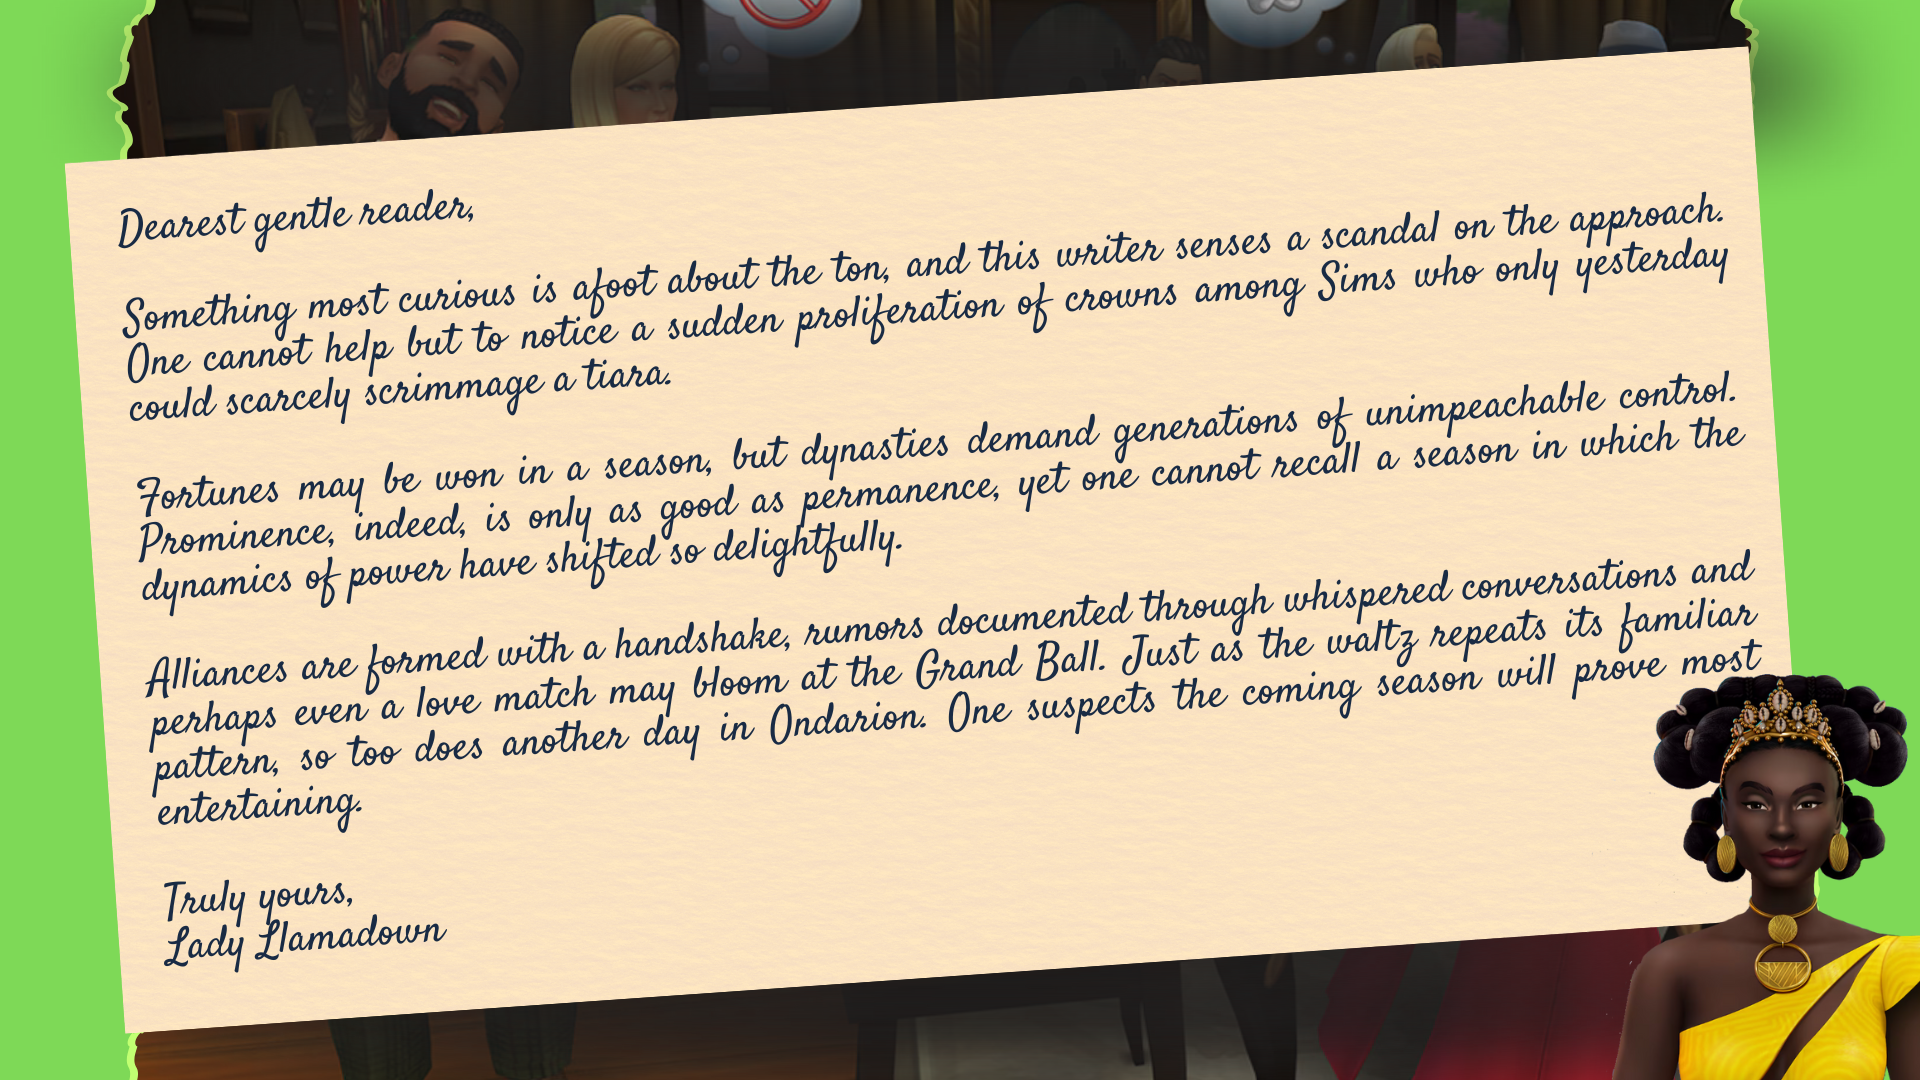 Dearest gentle reader,
Something most curious is afoot about the ton, and this writer senses a scandal on the approach.
One cannot help but to notice a sudden proliferation of crowns among Sims who only yesterday
could scarcely scrimmage a tiara.
Fortunes may be won in a season, but dynasties demand generations of unimpeachable control.
Prominence, indeed, is only as good as permanence, yet one cannot recall a season in which the
dynamics of power have shifted so delightfully.
Alliances are formed with a handshake, rumors documented through whispered conversations and
perhaps even a love match may bloom at the Grand Ball. Just as the waltz repeats its familiar
pattern, so too does another day in Ondarion. One suspects the coming season will prove most
entertaining.
Truly yours,
Lady Llamadown